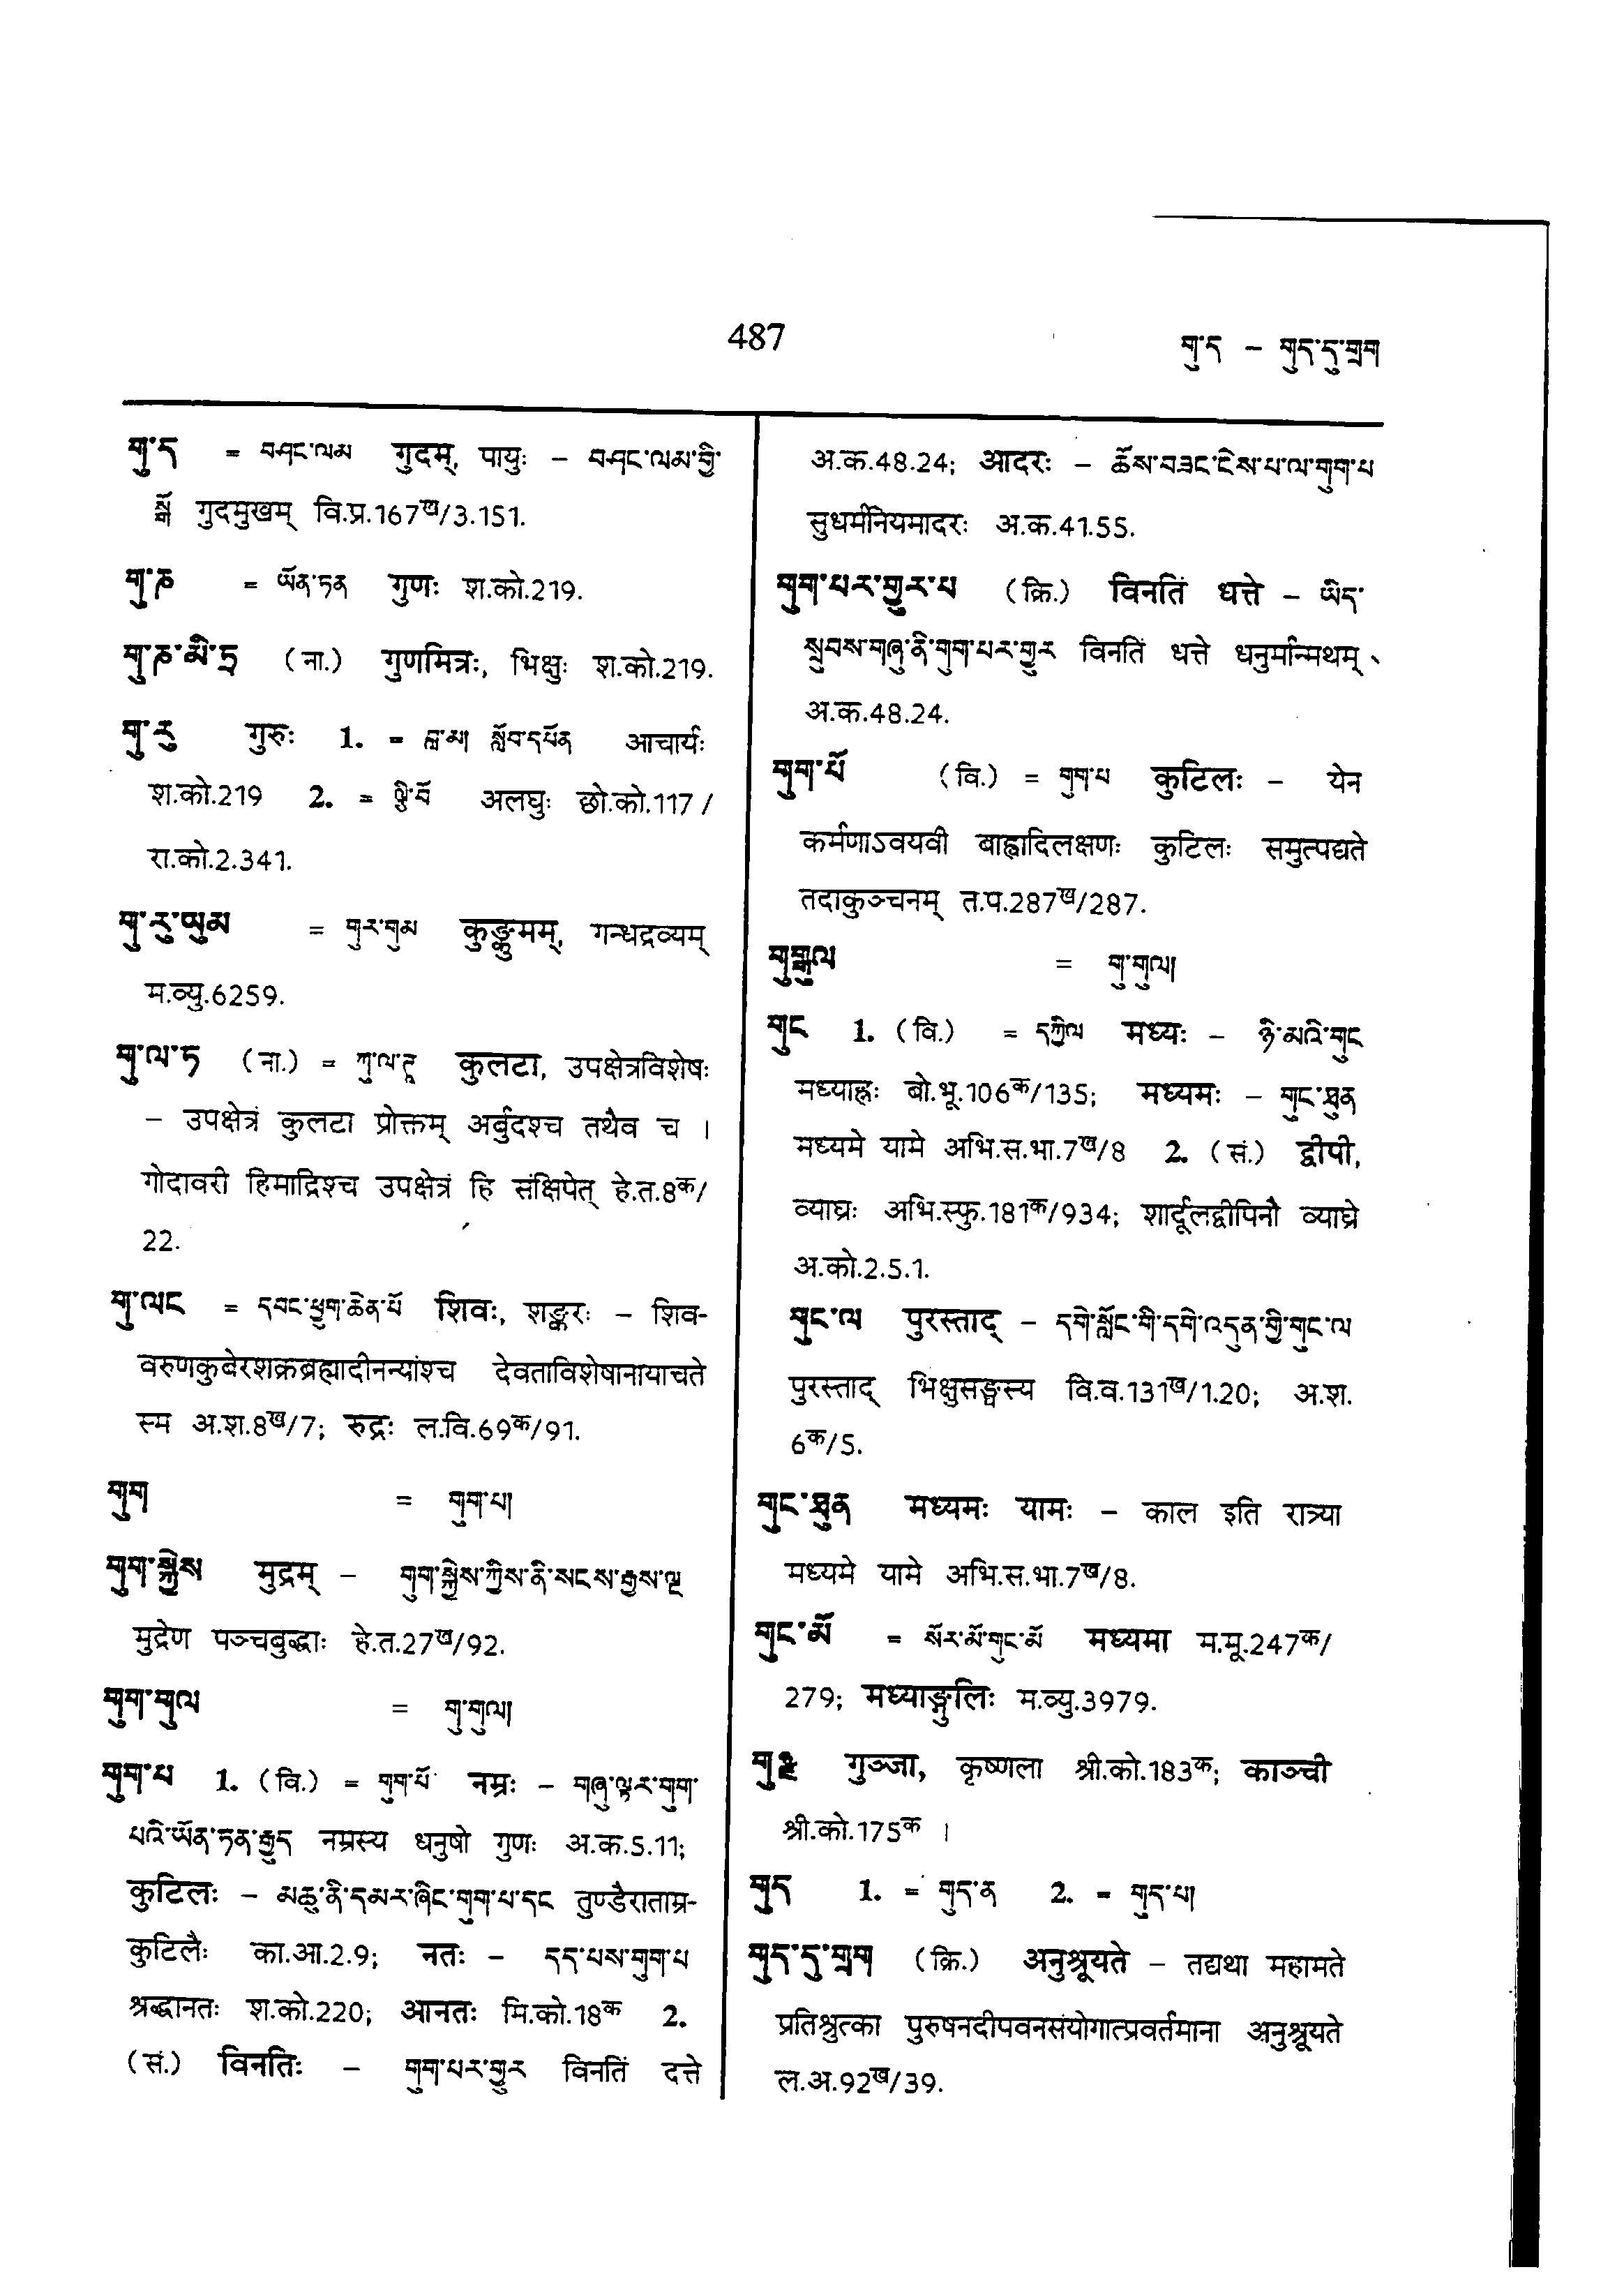 487
གུ་ད – གུད་དུ་གྲག
གུ་ད = བཤང་ལམ गुदम्, पायुः – བཤང་ལམ་གྱི་
སྒོ गुदमुखम् वि.प्र.167ख/3.151.
གུ་ཎ = ཡོན་ཏན गुणः श.को.219.
གུ་ཎ་མི་ཏྲ (ना.) गुणमित्रः, भिक्षुः श.को.219.
གུ་རུ गुरुः 1. = བླ་མ། སློབ་དཔོན आचार्यः
श.को.219 2. = ལྕི་བོ अलघुः छो.को.117/
रा.को.2.341.
གུ་རུ་ཡུམ = གུར་གུམ कुङ्कुमम्, गन्धद्रव्यम्
म.व्यु.6259.
གུ་ལ་ཏ (ना.) = ཀུ་ལ་ཊཱ कुलटा, उपक्षेत्रविशेषः
– उपक्षेत्रं कुलटा प्रोक्तम् अर्वुदश्च तथैव च ।
गोदावरी हिमाद्रिश्च उपक्षेत्रं हि संक्षिपेत् हे.त.8क/
22.
གུ་ལང = དབང་ཕྱུག་ཆེན་པོ शिवः, शङ्करः – शिव-
वरुणकुबेरशक्रब्रह्मादीनन्यांश्च देवताविशेषानायाचते
स्म अ.श.8ख/7; रुद्रः ल.वि.69क/91.
གུག = གུག་པ།
གུག་སྐྱེས मुद्रम् – གུག་སྐྱེས་ཀྱིས་ནི་སངས་རྒྱས་ལྔ
मुद्रेण पञ्चबुद्धाः हे.त.27ख/92.
གུག་གུལ = གུ་གུལ།
གུག་པ 1. (वि.) = གུག་པོ नम्रः – གཞུ་ལྟར་གུག་
པའི་ཡོན་ཏན་རྒྱུད नम्रस्य धनुषो गुणः अ.क.5.11;
कुटिलः – མཆུ་ནི་དམར་ཞིང་གུག་པ་དང तुण्डैराताम्र-
कुटिलैः का.आ.2.9; नतः – དད་པས་གུག་པ
श्रद्धानतः श.को.220; आनतः मि.को.18क 2.
(सं.) विनतिः – གུག་པར་གྱུར विनतिं दत्ते
अ.क.48.24; आदरः – ཆོས་བཟང་ངེས་པ་ལ་གུག་པ
सुधर्मनियमादरः अ.क.41.55.
གུག་པར་གྱུར་པ (क्रि.) विनतिं धत्ते – ཡིད་
སྲུབས་གཞུ་ནི་གུག་པར་གྱུར विनतिं धत्ते धनुर्मान्मथम्
अ.क.48.24.
གུག་པོ (वि.) = གུག་པ कुटिलः – येन
कर्मणाऽवयवी बाह्वादिलक्षणः कुटिलः समुत्पद्यते
तदाकुञ्चनम् त.प.287ख/287.
གུགྒུལ = གུ་གུལ།
གུང 1. (वि.) = དཀྱིལ मध्यः – ཉི་མའི་གུང
मध्याह्नः बो.भू.106क/135; मध्यमः – གུང་ཐུན
मध्यमे यामे अभि.स.भा.7ख/8 2. (सं.) द्वीपी,
व्याघ्रः अभि.स्फु.181क/934; शार्दूलद्वीपिनौ व्याघ्रे
अ.को.2.5.1.
གུང་ལ पुरस्ताद् – དགེ་སློང་གི་དགེ་འདུན་གྱི་གུང་ལ
पुरस्ताद् भिक्षुसङ्घस्य वि.व.131ख/1.20; अ.श.
6क/5.
གུང་ཐུན मध्यमः यामः – काल इति रात्र्या
मध्यमे यामे अभि.स.भा.7ख/8.
གུང་མོ = སོར་མོ་གུང་མོ मध्यमा म.मू.247क/
279; मध्याङ्गुलिः म.व्यु.3979.
गुञ्जा, कृष्णला श्री.को.183क; काञ्ची
श्री.को.175क ।
གུད 1. = གུད་ན 2. = གུད་པ།
གུད་དུ་གྲག (क्रि.) अनुश्रूयते – तद्यथा महामते
प्रतिश्रुत्का पुरुषनदीपवनसंयोगात्प्रवर्तमाना अनुश्रूयते
ल.अ.92ख/39.